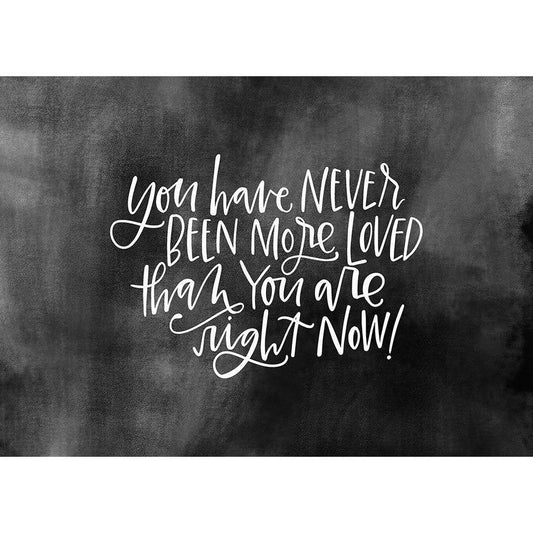 you have NEVER
BEEN MoRe LOVED
than You are
right NOW!